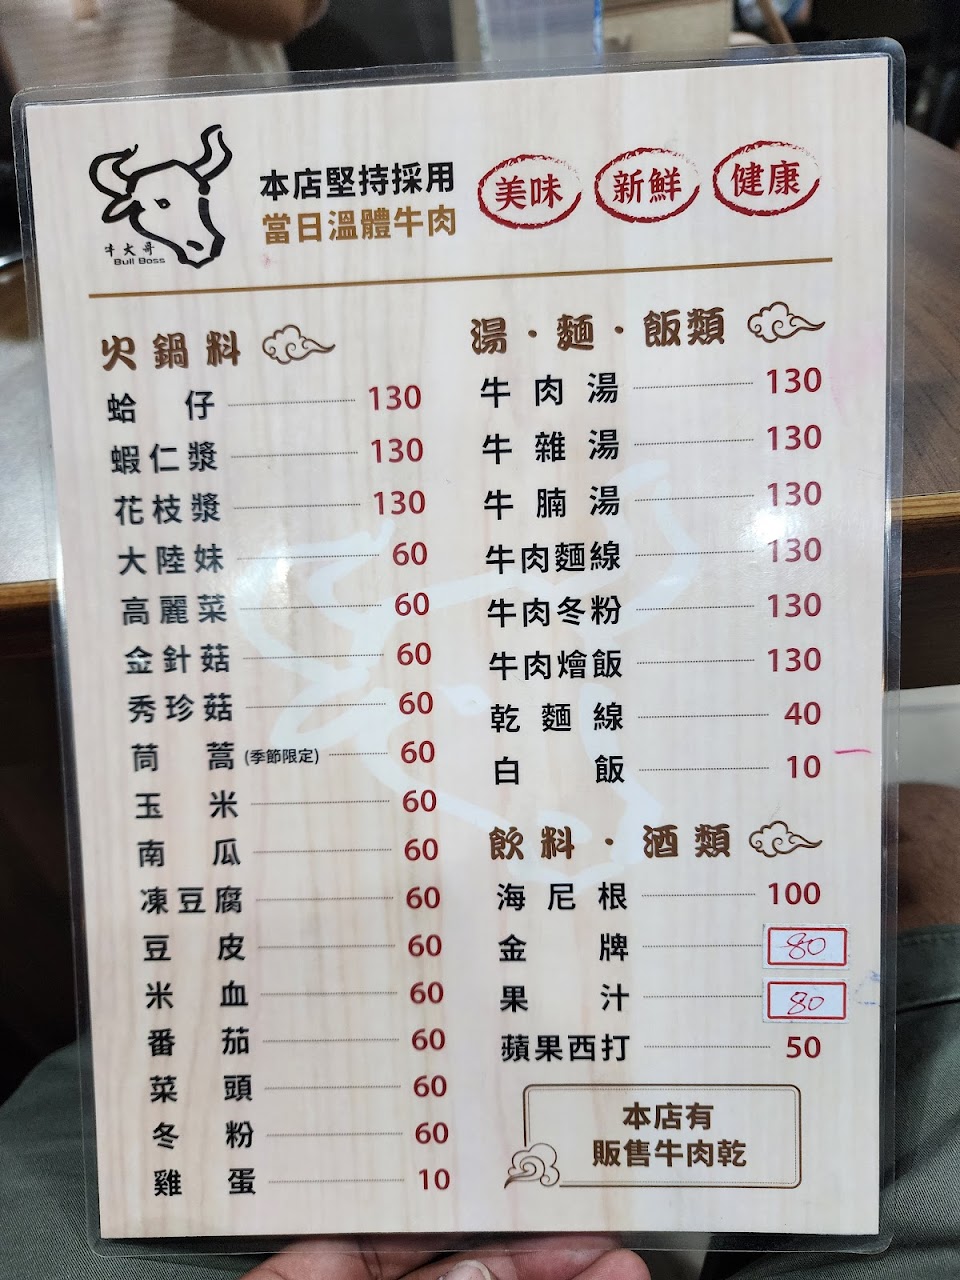 牛大哥
Bull Boss
本店堅持採用
當日溫體牛肉
美味
新鮮
健康
火鍋料
蛤仔 130
蝦仁漿 130
花枝漿 130
大陸妹 60
高麗菜 60
金針菇 60
秀珍菇 60
茼蒿(季節限定) 60
玉米 60
南瓜 60
凍豆腐 60
豆皮 60
米血 60
番茄 60
菜頭 60
冬粉 60
雞蛋 10
湯・麵・飯類
牛肉湯 130
牛雜湯 130
牛腩湯 130
牛肉麵線 130
牛肉冬粉 130
牛肉燴飯 130
乾麵線 40
白飯 10
飲料・酒類
海尼根 100
金牌 80
果汁 80
蘋果西打 50
本店有
販售牛肉乾